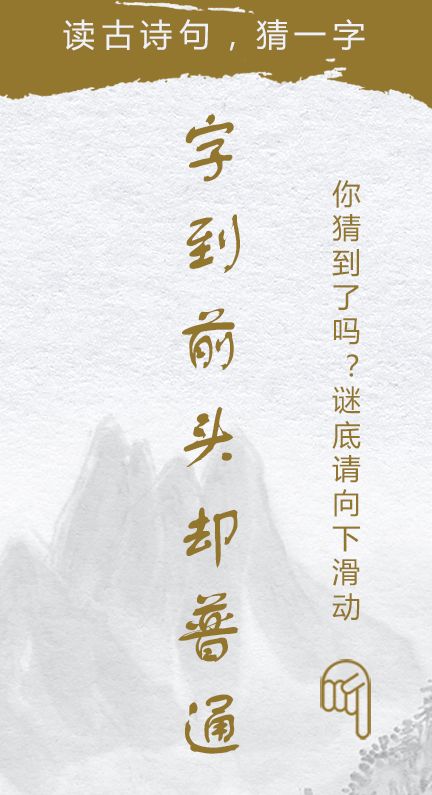 读古诗句，猜一字
字到前头却普通
你猜到了吗？谜底请向下滑动